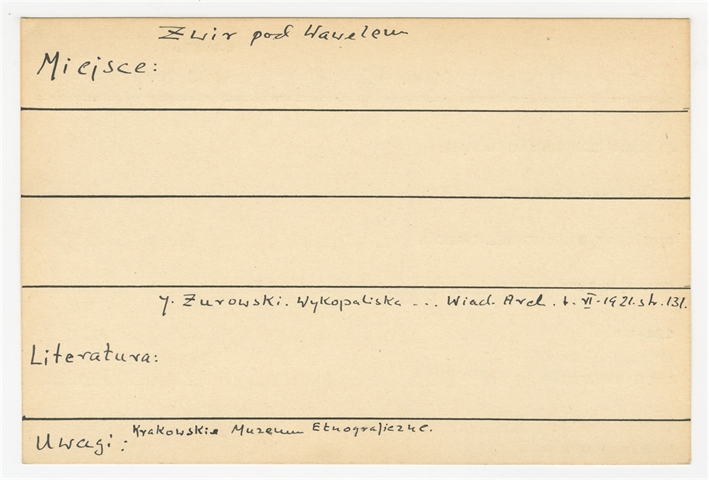 Zwir pod Wawelem
Miejsce:
J. Żurowski. Wykopaliska ... Wiad. Arch. t. VI. 1921. str. 131.
Literatura:
Krakowskie Muzeum Etnograficzne.
Uwagi: